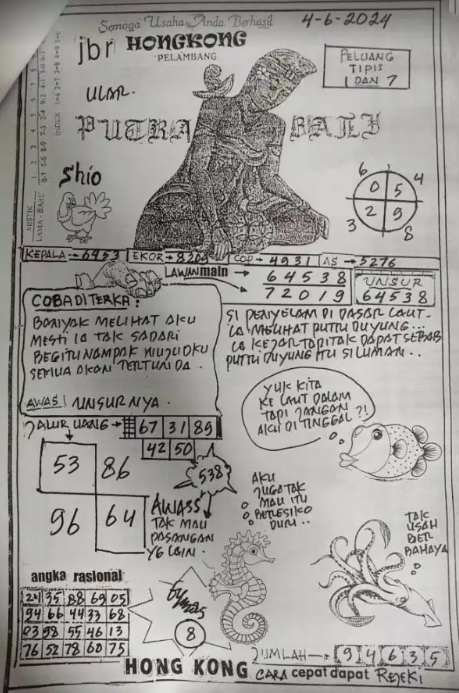 Semoga Usaha Anda Berhasil
4-6-2024
jbr HONGKONG
PELAMBANG
PELUANG
TIPIS
1 DAN 7
ULAR.
PUTRA BALI
Shio
6 4
0 5
2 9
3 8
KEPALA→6453 EKOR→8209 COP→4931 AS→5276
LAWAN main → 64538
72019
UNSUR
64538
COBA DITERKA:
BANYAK MELIHAT AKU
MESTI IA TAK SADARI
BEGITU NAMPAK WUJUDKU
SEMUA AKAN TERTUNDA.
AWAS! UNSURNYA.
SI PENYELAM DI DASAR LAUT.
IA MELIHAT PUTRI DUYUNG...
IA KEJAR TAPI TAK DAPAT SEBAB
PUTRI DUYUNG ITU SILUMAN...
YUK KITA
KE LAUT DALAM
TAPI JANGAN
AKU DI TINGGAL ?!
JALUR UANG → 67 31 89
42 50
53 86
96 64
538
AWASS
TAK MAU
PASANGAN
YG LAIN.
AKU
JUGA TAK
MAU ITU
BERESIKO
DURI..
TAK
USAH
BER
BAHAYA
angka rasional
24 35 88 69 05
94 66 44 33 68
03 98 55 46 13
76 52 78 60 75
8
JUMLAH → 9 4 6 3 5
HONG KONG CARA cepat dapat REJEKI